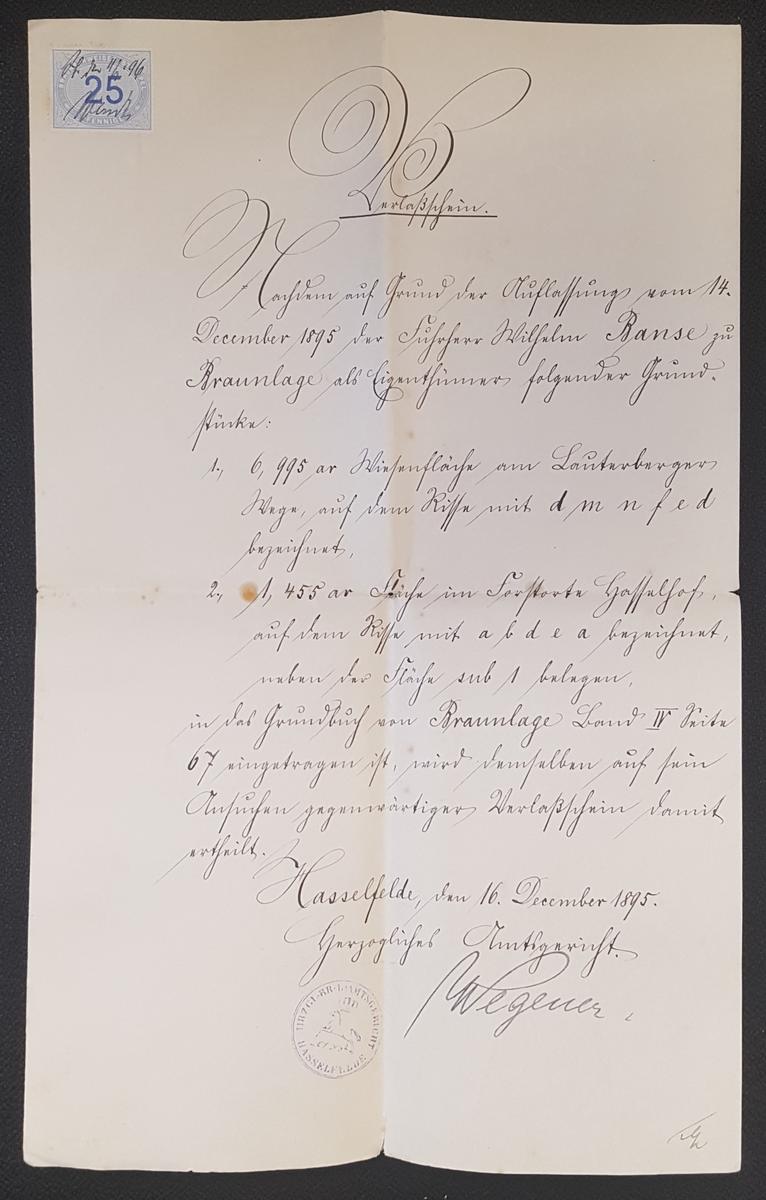 25
PFENNIG
Verlaßschein.
Nachdem auf Grund der Auflassung vom 14.
December 1895 der Fuhrherr Wilhelm Banse zu
Braunlage als Eigenthümer folgender Grund-
stücke:
1., 6,995 ar Wiesenfläche am Lauterberger
Wege, auf dem Risse mit d m n f e d
bezeichnet,
2., 1,455 ar Fläche im Forstorte Hasselhof,
auf dem Risse mit a b d e a bezeichnet,
neben der Fläche sub 1 belegen,
in das Grundbuch von Braunlage Band IV Seite
67 eingetragen ist, wird demselben auf sein
Ansuchen gegenwärtiger Verlaßschein damit
ertheilt.
Hasselfelde, den 16. December 1895.
Herzogliches Amtsgericht.
Wegener
HRZGL. BR. L. AMTSGERICHT
HASSELFELDE